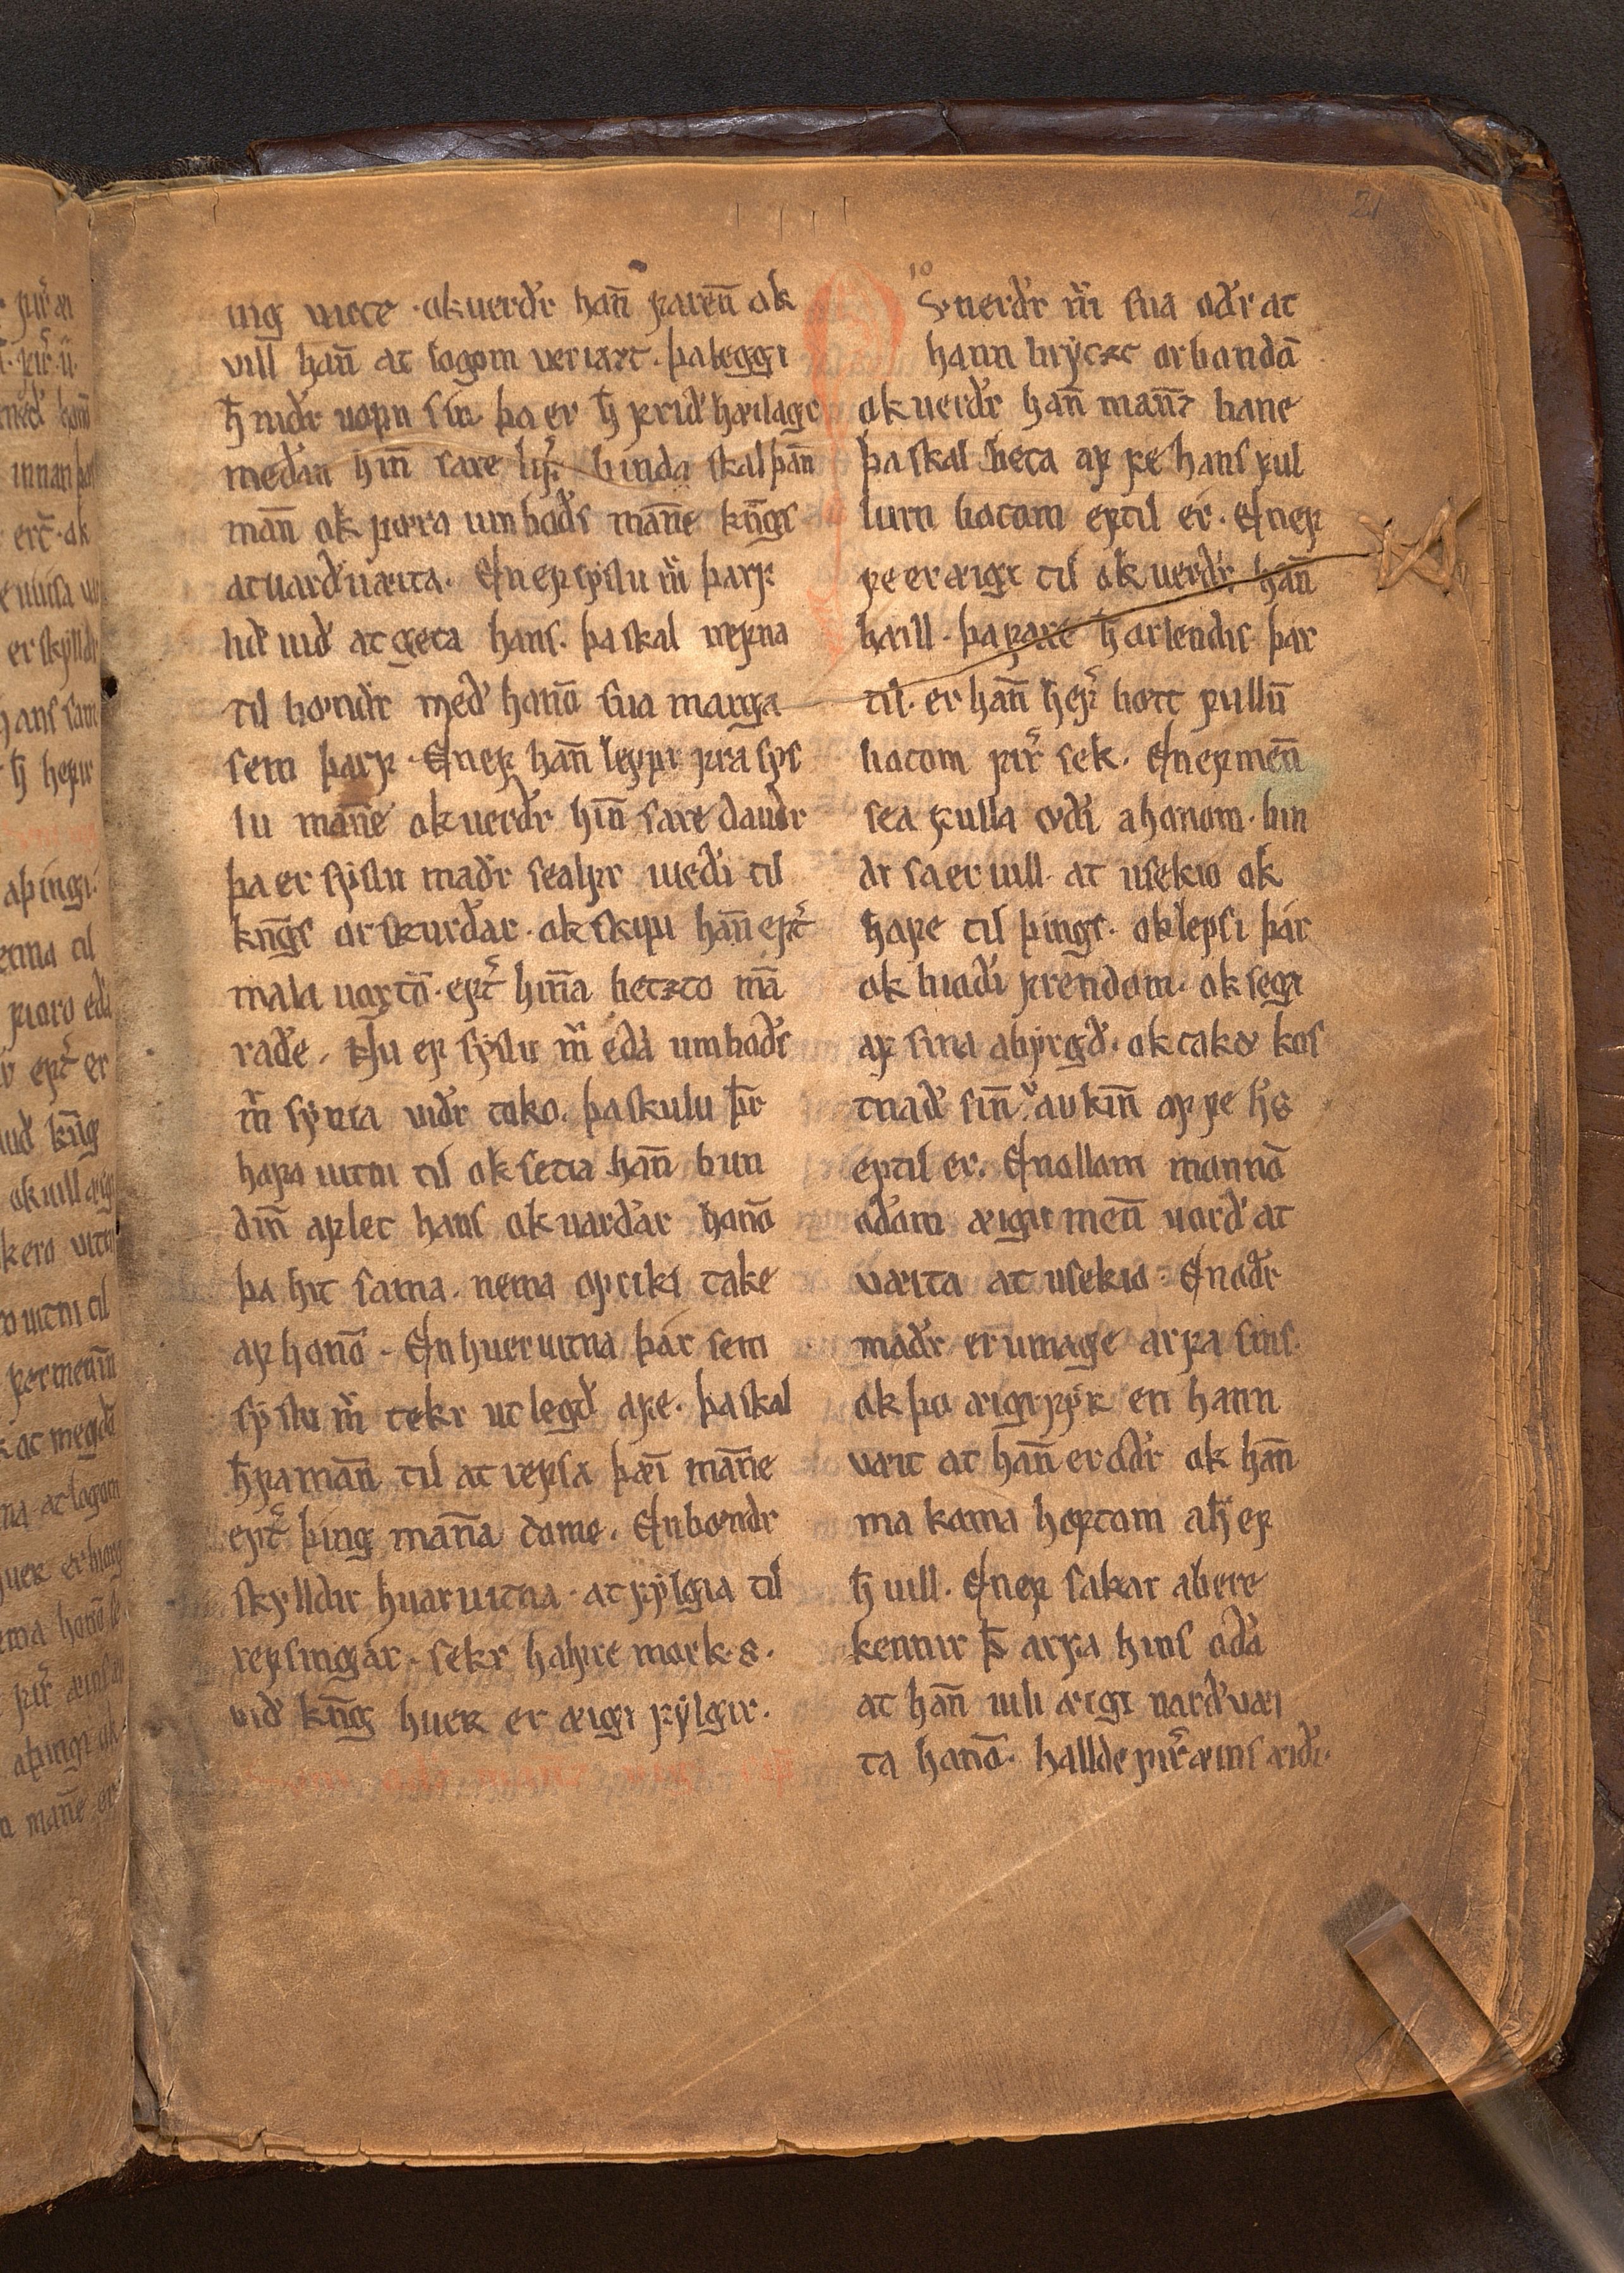 21
uig vitte · ok uerðr han̄ faren̄ ok
vill han̄ at logom veriazt · þa leggi
h̄ niðr uopn sin þa er h̄ friðhæilagr
meðan hin̄ sare lif͛ · binda skal þān
man̄ ok føra umboðs man̄e kn̄gs
at uarðuæita · En ef syslu m̄ þarf
lið uið at geta hans · þa skal nefna
til bøndr með honō sua marga
sem þarf · En ef han̄ løypr fra sys
lu man̄e ok uerðr hin̄ sare dauðr
þa er syslu maðr sealfr ueði til
kn̄gs orskurðar · ok skipi han̄ eft͛
mala uoxtō · eft͛ hin̄a betzto m̄a
raðe · Nu ef syslu m̄ eða umboðs
m̄ synia viðr toko · þa skulu þr̄
hafa uitni til ok setia han̄ bun
din̄ a flet hans ok uarðar honō
þa hit sama · nema af riki take
af honō · En huer uitna þar sem
syslu m̄ tekr utlegð afe · þa skal
h̄ fa man̄ til at refsa þæī man̄e
eft͛ þing man̄a dome · En bøndr
skylldir huaruitna · at fylgia til
refsingar · sekr halfre mork · s ·
uið kn̄g huer er æigi fylgir ·
10
O S verðr m̄ sua oðr at
hann brytzt or bondō
ok uerðr han̄ man̄z bane
þa skal bøta af fe hans ful
lum botom ef til er · En ef
fe er æigi til ok uerðr han̄
hæill · þa fare h̄ or lendis þar
til · er han̄ hef͛ bott fullū
botom fir͛ sek · En ef men̄
sea fulla oði a honom · bin
di sa er uill at usekiu ok
hafe til þings · ok løysi þar
ok bioði frendom · ok segi
af sina abyrgð · ok take kos
tnað sin̄ aukin̄ af fe hs
ef til er · En ollom monnō
oðom æigu men̄ uorð at
væita at usekiu · En oðr
maðr er umage arfa sins ·
ok þo æigi fyr en hann
væit at han̄ er oðr ok han̄
ma koma hoftom a h̄ ef
h̄ uill · En ef sakar abere
kennir arfa hins oða
at han̄ uili æigi uarðuæi
ta honō · hallde fir͛ æins æiði ·